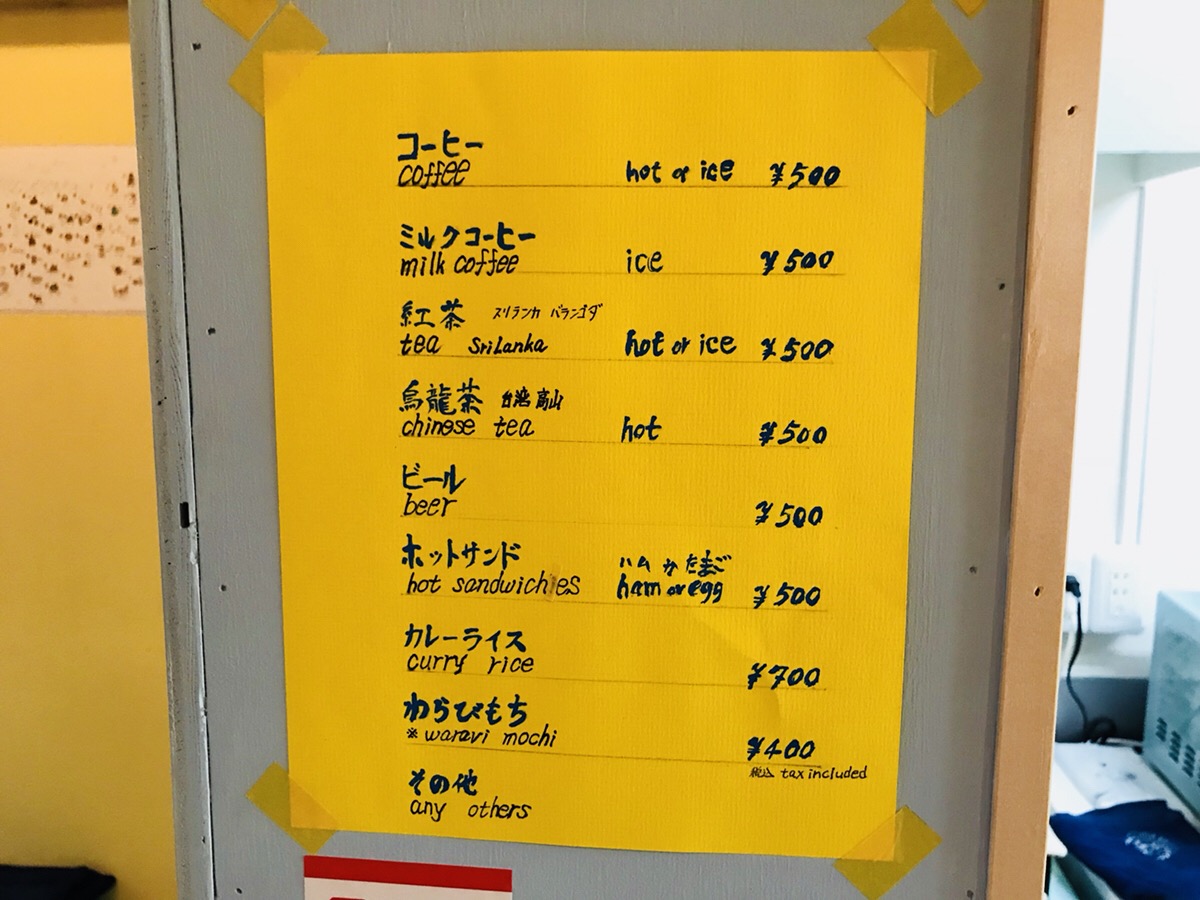 コーヒー
coffee hot or ice ¥500
ミルクコーヒー
milk coffee ice ¥500
紅茶 スリランカ バランゴダ
tea SriLanka hot or ice ¥500
烏龍茶 台湾高山
chinese tea hot ¥500
ビール
beer ¥500
ホットサンド ハムかたまご
hot sandwichies ham or egg ¥500
カレーライス
curry rice ¥700
わらびもち
※waravi mochi ¥400
税込 tax included
その他
any others